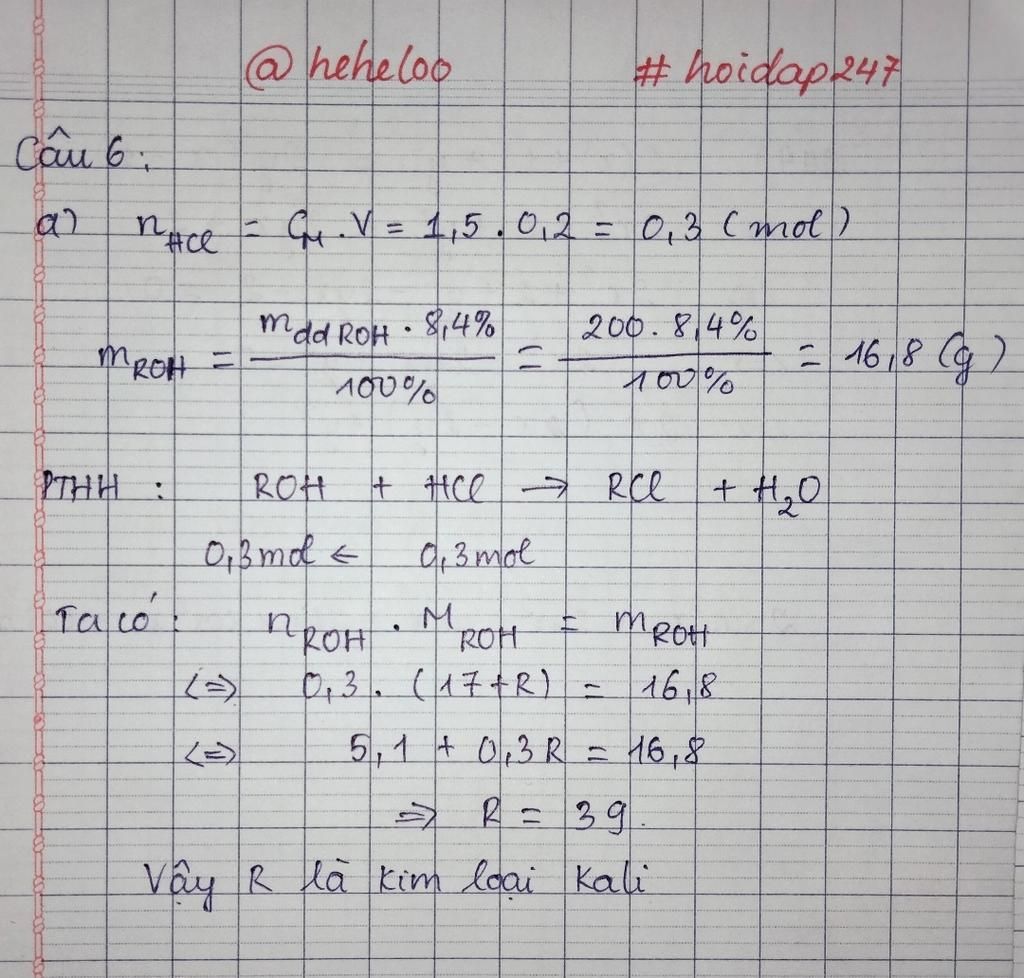 @heheloo #hoidap247
Câu 6:
a) n_HCl = C_M . V = 1,5 . 0,2 = 0,3 (mol)
m_ROH = (m_dd ROH . 8,4%)/(100%) = (200 . 8,4%)/(100%) = 16,8 (g)
PTHH : ROH + HCl → RCl + H₂O
0,3mol ← 0,3mol
Ta có : n_ROH . M_ROH = m_ROH
<=> 0,3 . (17+R) = 16,8
<=> 5,1 + 0,3R = 16,8
=> R = 39.
Vậy R là kim loại Kali